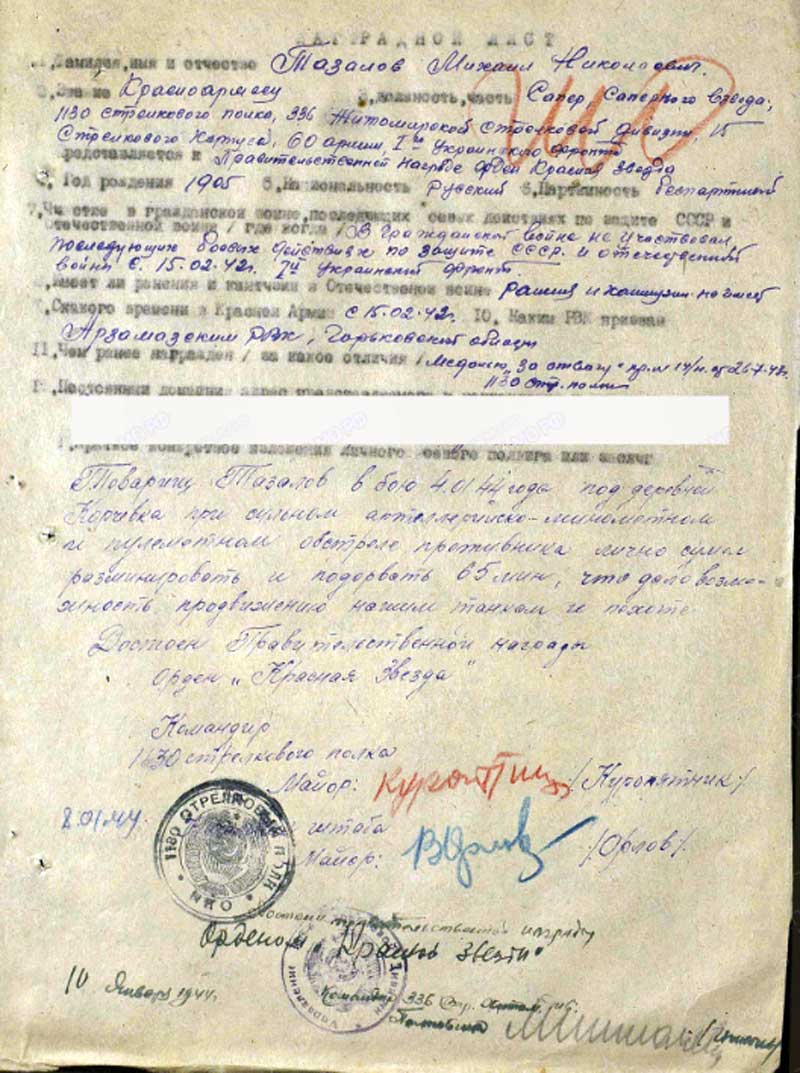 НАГРАДНОЙ ЛИСТ
1. Фамилия, имя и отчество Тазалов Михаил Николаевич.
2. Звание Красноармеец 3, должность, часть Сапер Саперного взвода,
1130 стрелкового полка, 336 Житомирской стрелковой дивизии, 15
Стрелкового Корпуса, 60 армии, 1го Украинского фронта
редставляется к Правительственной награде орден Красная Звезда
4, Год рождения 1905 5, Национальность Русский 6, Партийность беспартийный
7, Участие в гражданской войне, последующих боевых действиях по защите СССР и
Отечественной войне / где когда / В Гражданской войне не участвовал,
последующих боевых действиях по защите СССР. и отечественной
войны с. 15.02.42г. 1й Украинский фронт.
8, Имеет ли ранения и контузии в Отечественной войне ранения и контузии не имеет
9, С какого времени в Красной Армии с 15.02.42г. 10, Каким РВК призван
Арзамазским РВК, Горьковской области
11, Чем ранее награжден / за какое отличия / Медалью "за отвагу"
1130 стр. полка
12, Постоянный домашний адрес
Краткое конкретное изложения личного боевого подвига или заслуг
Товарищ Тазалов в бою 4.01.44 года под деревней
Корчевка при сильном артеллерийско-минометном
и пулеметном обстреле противника лично сумел
разминировать и подорвать 65 мин, что дало возмо-
жность продвижению нашим танкам и пехоте
Достоен Правителественной награды
орден „Красная Звезда"
Командир
1130 стрелкового полка
Майор: /Куропятник/
8.01.44 штаба
Майор: ВОрлов /Орлов/
1130 СТРЕЛКОВЫЙ ПОЛК
НКО
Достоин правительственной награды
Орденом „Красной звезды"
10 Января 1944г.
Командир 336 стр.
Полковник